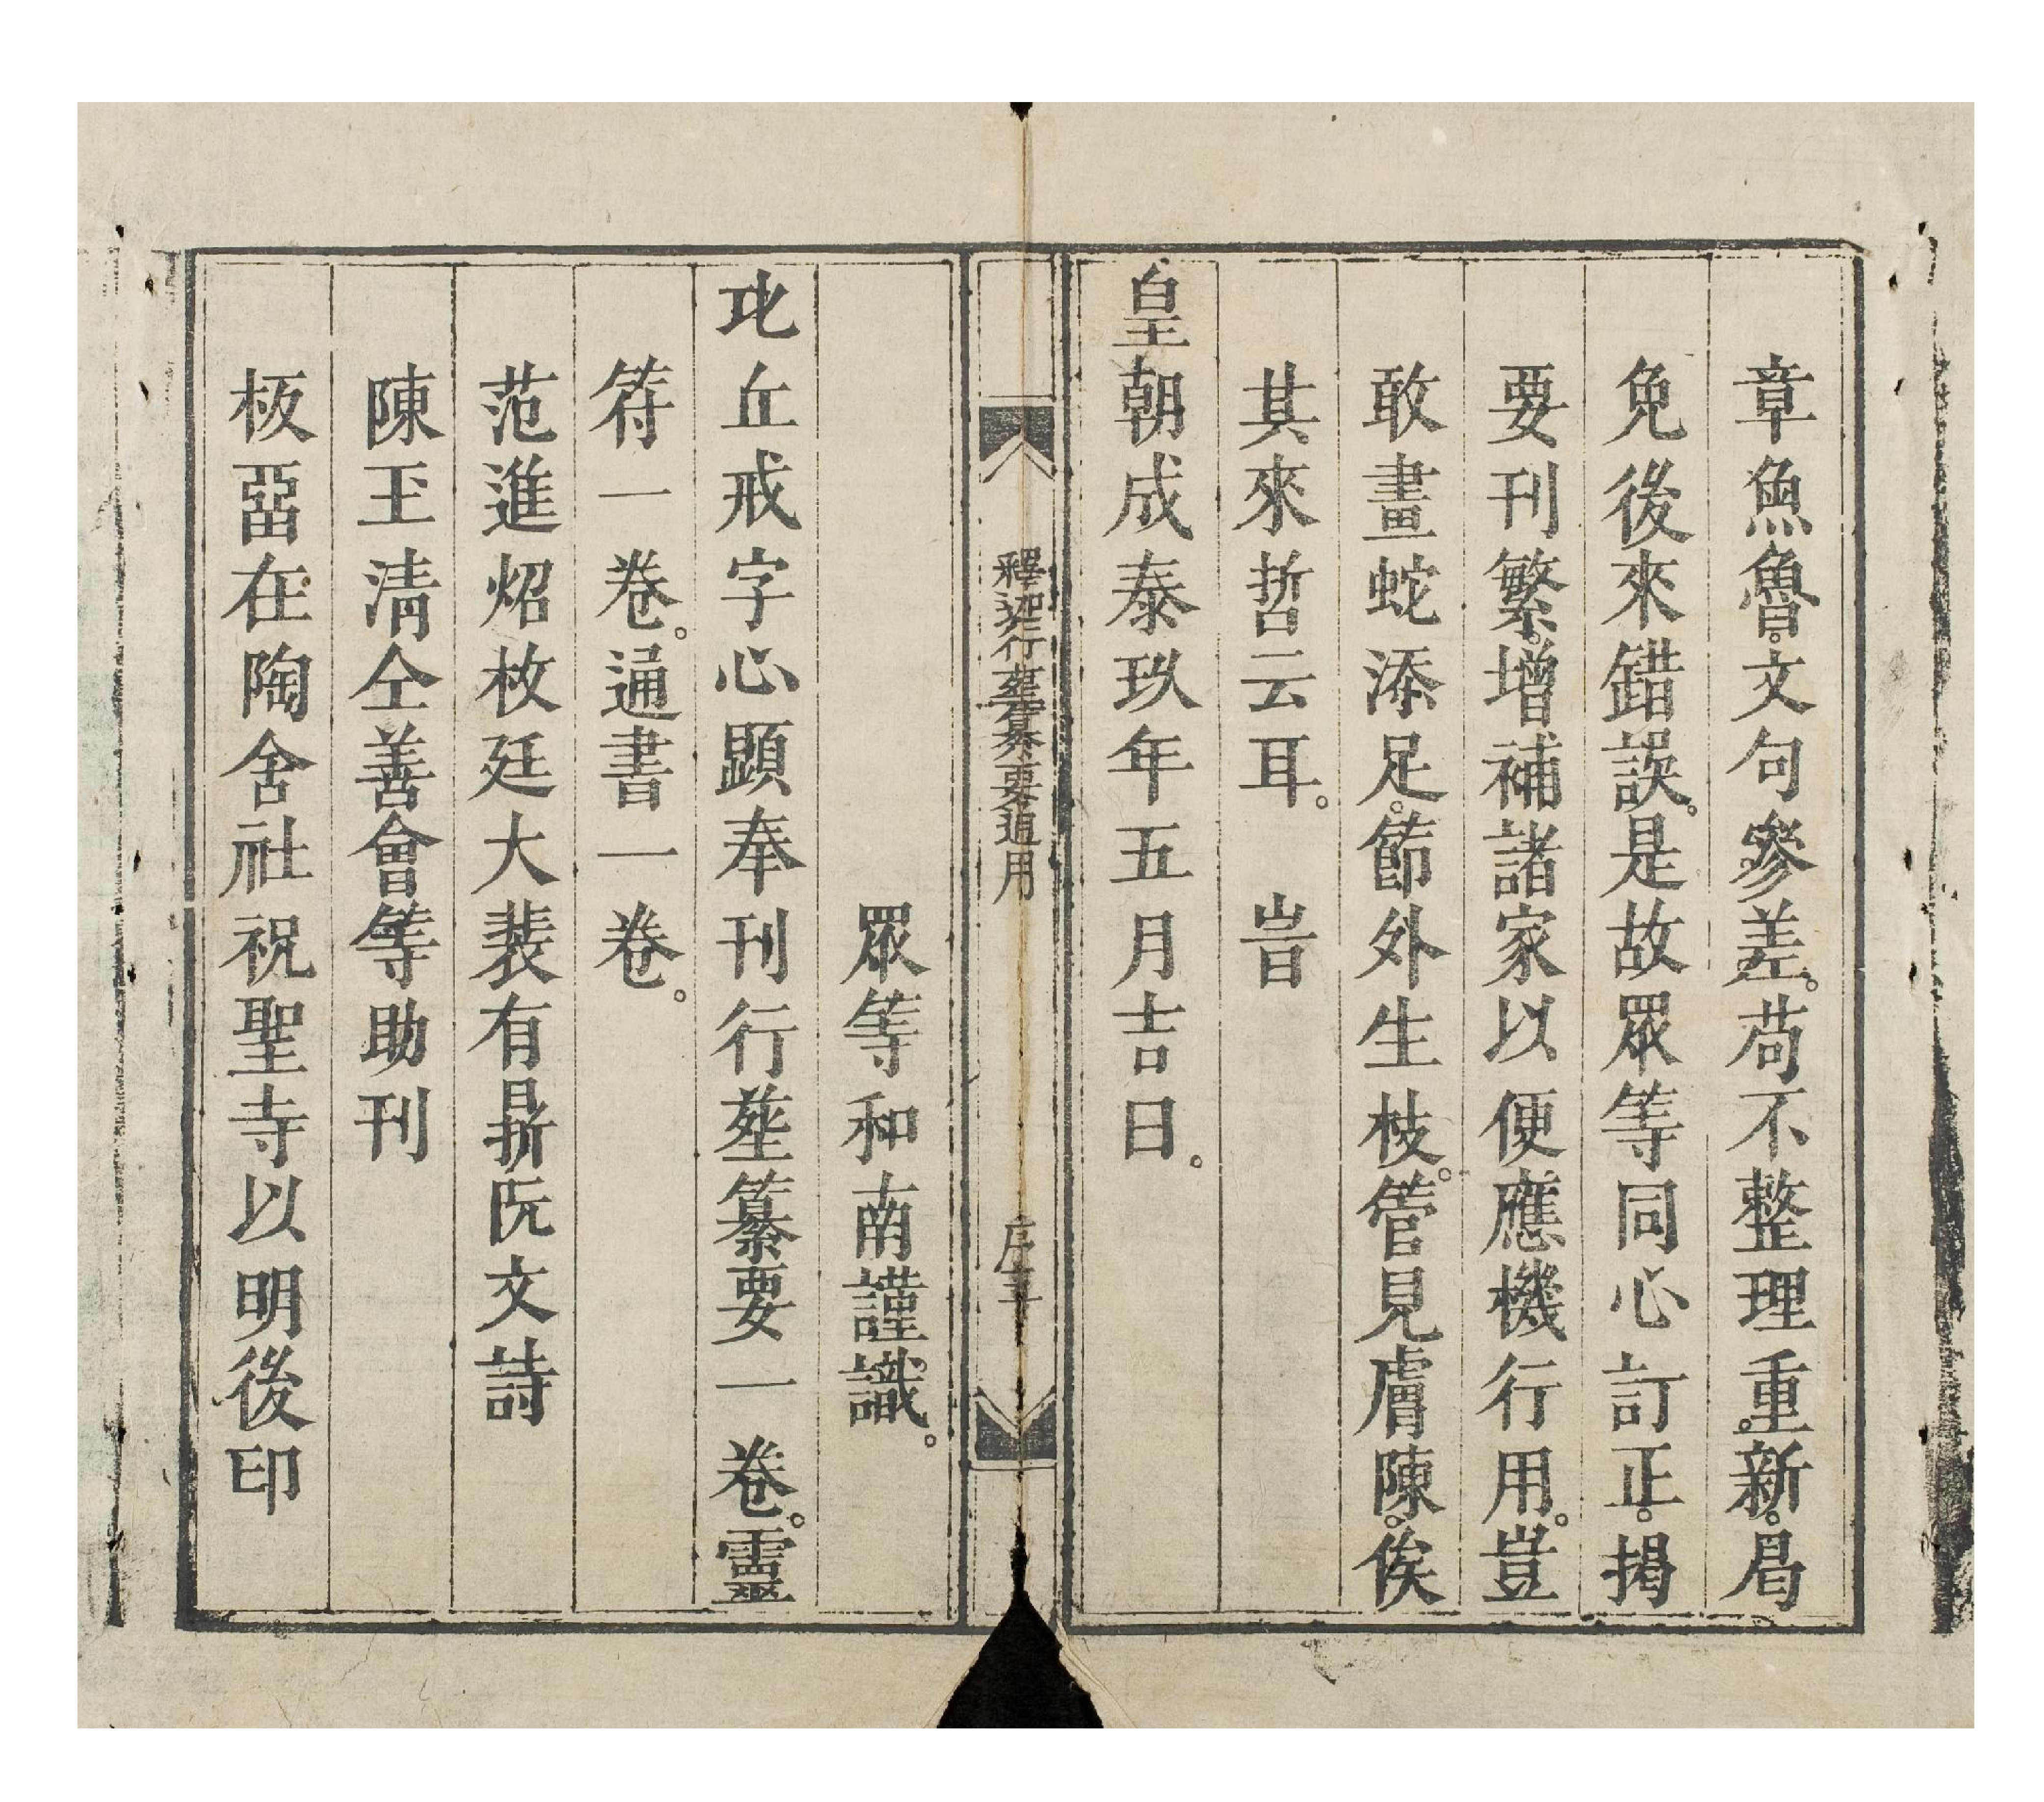 章魚魯。文句參差。苟不整理重新。曷
免後來錯誤。是故眾等同心訂正。掲
要刊繁。增補諸家以便應機行用。豈
敢畫蛇添足。節外生枝。管見膚陳。俟
其來哲云耳。　旹
皇朝成泰玖年五月吉日。
釋迦行𦵏纂要通用
序
眾等和南謹識。
比丘戒字心顕奉刊行𦵏纂要一卷。靈
符一卷。通書一卷。
范進炤枚廷大裴有阮文詩
陳玉清仝善會等助刊
板畱在陶舍社祝聖寺以明後印